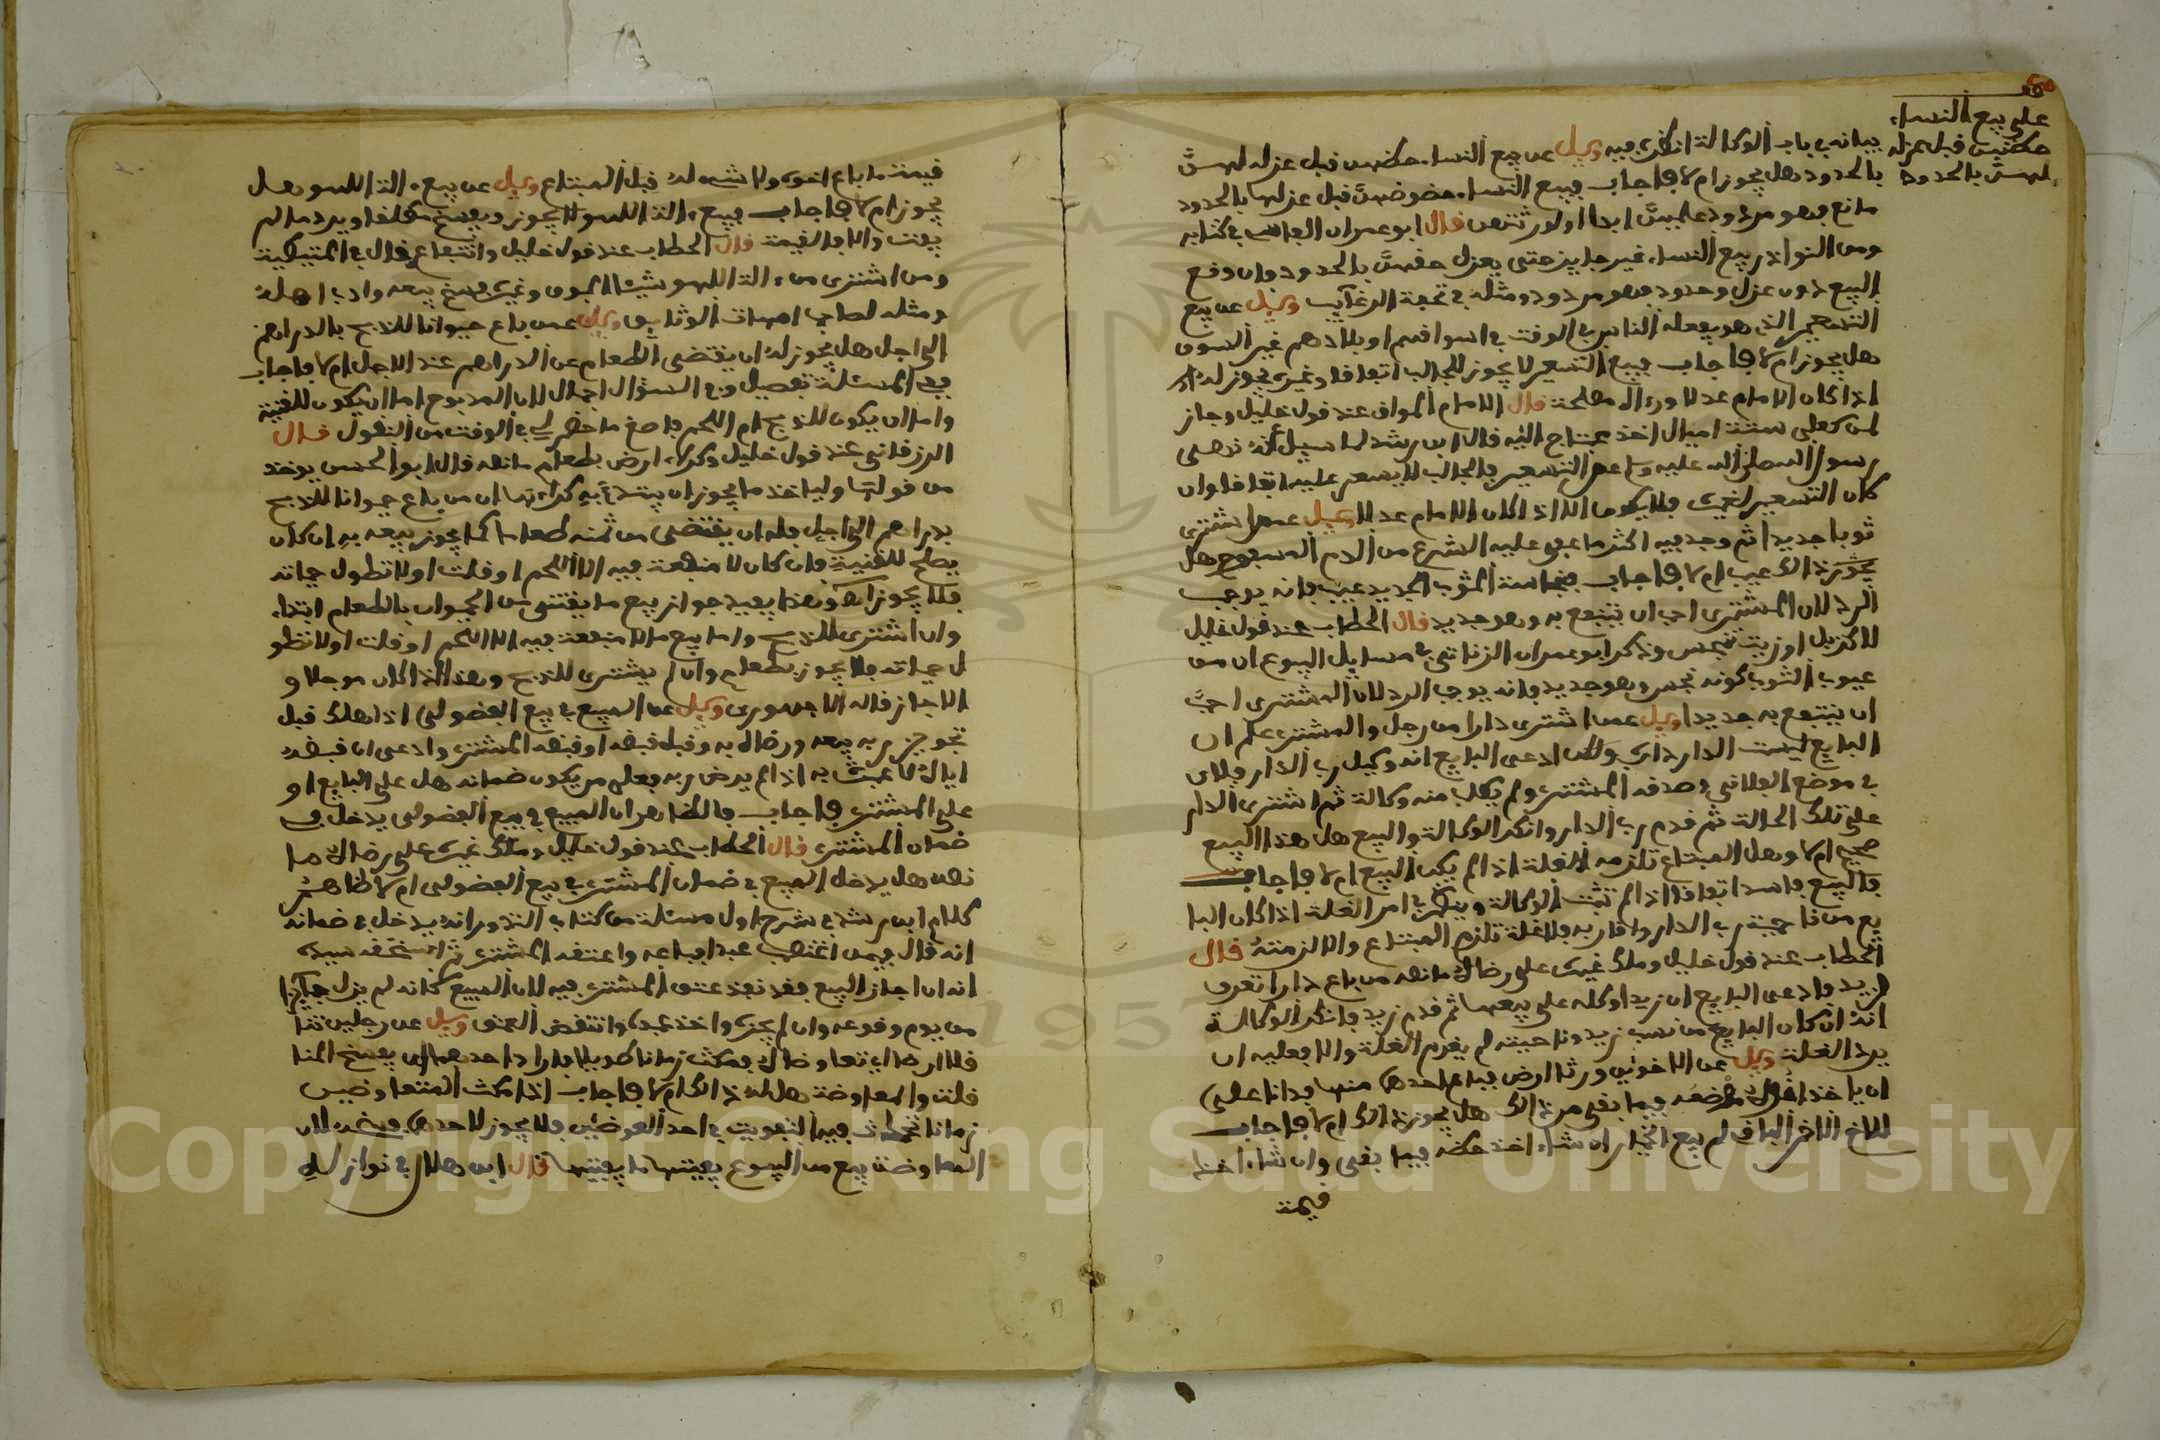 على بيع النساء
حظهن قبل عزله
لهن بالحدود
بيانه في باب الوكالة انظره فيه وسئل عن بيع النساء حظهن قبل عزله لهن
بالحدود هل يجوز ام لا فاجاب فبيع النساء حضوضهن قبل عزلها بالحدود
مانع فهو مردود عليهن ابدا او لورثتهن قال ابو عمران الفاسي في كتابه
ومن النوادر بيع النساء غير جايز حتى يعزل حقهن بالحدود وان وقع
البيع دون عزل وحدود فهو مردود ومثله في تحفة وسئل عن بيع
التسعير الذي هو يفعله الناس في الوقت في اسواقهم او بلادهم غير السوق
هل يجوز ام لا فاجاب فبيع التسعير لا يجوز للجالب اتفاقا وغيره يجوز له
اذا كان الامام عدلا ورءاه مصلحة قال الامام المواق عند قول خليل وجاز
لمن كعلى ستة اميال اخذ محتاج اليه قال ابن رشد لما سيل نهى
رسول الله صلى الله عليه وسلم عن التسعير فالجالب لا يسعر عليه اتفاقا وان
كان التسعير لغيره فلا يكون الا اذا كان الامام عدلا وسئل عمن اشترى
ثوبا جديدا ثم وجد فيه اكثر ما عفى عليه الشرع من الدم المسفوح هل
ذلك عيب ام لا فاجاب فنجاسة الثوب الجديد عيب فانه يوجب
الرد لان المشترى احب ان ينتفع به وهو جديد قال الحطاب عند قول خليل
لا كزبل وزيت تنجس وذكر ابو عمران الزناتي في مسايل البيوع ان من
عيوب الثوب كونه نجس وهو جديد فانه يوجب الرد لان المشترى احب
ان ينتفع به جديدا وسئل عمن اشترى دارا من رجل والمشترى علم ان
البايع ليست الدار داره ولكن ادعى البايع انه وكيل رب الدار فلان
في موضع الفلاني وصدقه المشترى ولم يطلب منه وكالة ثم اشترى الدار
على تلك الحالة ثم قدم رب الدار وانكر الوكالة والبيع هل هذا البيع
صحيح ام لا وهل المبتاع تلزمه الغلة اذا لم يكن البيع ام لا فاجاب
فالبيع فاسد اتفاقا اذا لم تثبت الوكالة وينظر في امر الغلة اذا كان البا
يع من ناحية رب الدار واقاربه فلا غلة تلزم المبتاع والا لزمته قال
الحطاب عند قول خليل وملك غيره على رضاه ما نصه من باع دارا تعرف
لزيد وادعى البايع ان زيدا وكله على بيعها ثم قدم زيد فانكر الوكالة
انه ان كان البايع من نسب زيد وناحيته لم يغرم الغلة والا فعليه ان
يرد الغلة وسئل عن الاخوين ورثا ارض فباع احدهما منها فدانا على
ان ياخذ اخوه فيما بقى من ذلك هل يجوز ذلك ام لا فاجاب
للاخ الاخر لم يبع الخيار ان شاء اخذ حظه فيما بقى وان شاء اخذ
قيمة
قيمة ما باع اخوه ولا شيء له قبل المبتاع وسئل عن بيع ءالة اللهو هل
يجوز ام لا فاجاب فبيع ءالة اللهو لا يجوز ويفسخ مطلقا ويرد ما لم
يفت والا فالقيمة قال الحطاب عند قول خليل وانتفاع قال في المتيطية
ومن اشترى من ءالة اللهو شيئا البوق وغيره فسخ بيعه وادب اهله
ومثله لصاحب امهات الوثايق وسئل عمن باع حيوانا للذبح بالدراهم
الى اجل هل يجوز له ان يقتضي الطعام عن الدراهم عند الاجل ام لا فاجاب
ففي المسئلة تفصيل وفي السؤال اجمال لان المذبوح اما ان يكون للقنية
واما ان يكون للذبح ام اللحم ما حضر لي في الوقت من النقول قال
الزرقاني عند قول خليل وكراء ارض بطعام ما نصه قال ابو الحسن يوخذ
من قولها ولياخذ ما يجوز ان يبتدئ به كراءها ان من باع حيوانا للذبح
بدراهم الى اجل فله ان يقتضى من ثمنه طعاما كما يجوز بيعه به ان كان
يصلح للقنية فان كان لا منفعة فيه الا اللحم او قلت او لا تطول حياته
فلا يجوز وهذا يفيد جواز بيع ما يقتنى من الحيوان بالطعام ابتداء
وان اشترى للذبح واما بيع ما لا منفعة فيه الا اللحم او قلت او لا تطو
ل حياته فلا يجوز بطعام وان لم يشترى للذبح وهذا اذا كان موجلا و
الا جاز قاله الاجهوري وسئل عن المبيع في بيع الفضولى اذا هلك قبل
تجويز ربه بيعه ورضاه به وقبل قبضه او قبضه المشترى وادعى ان قبضه
اياه لا عبرة به اذا لم يرض ربه فعلى من يكون ضمانه هل على البايع او
على المشترى فاجاب فالظاهر ان المبيع في بيع الفضولى يدخل في
ضمان المشترى قال الحطاب عند قول خليل وملك غيره على رضاه ما
نصه هل يدخل المبيع في ضمان المشترى في بيع الفضولى ام لا ظاهر
كلام ابن رشد في شرح اول مسئلة من كتاب النذور انه يدخل في ضمانه
انه قال فيمن اغتصب عبدا فباعه واعتقه المشترى ثم استحقه سيده
انه ان اجاز البيع فقد نفذ عتق المشترى فيه لان البيع كانه لم يزل جايزا
من يوم وقوعه وان لم يجزه واخذ عبده وانتقض العتق وسئل عن رجلين تنا
قلا ارضا اي تعاوضاه فمكث زمانا طويلا فاراد احدهما ان يفسخ المنا
قلة والمعاوضة هل له ذلك ام لا فاجاب اذا مكث المتعاوضين
زمانا تخللت فيه التفويت في احد العوضين فلا يجوز لاحدهما فسخه لان
المعاوضة بيع من البيوع يفيتها ما يفيتها قال ابن هلال في نوازله